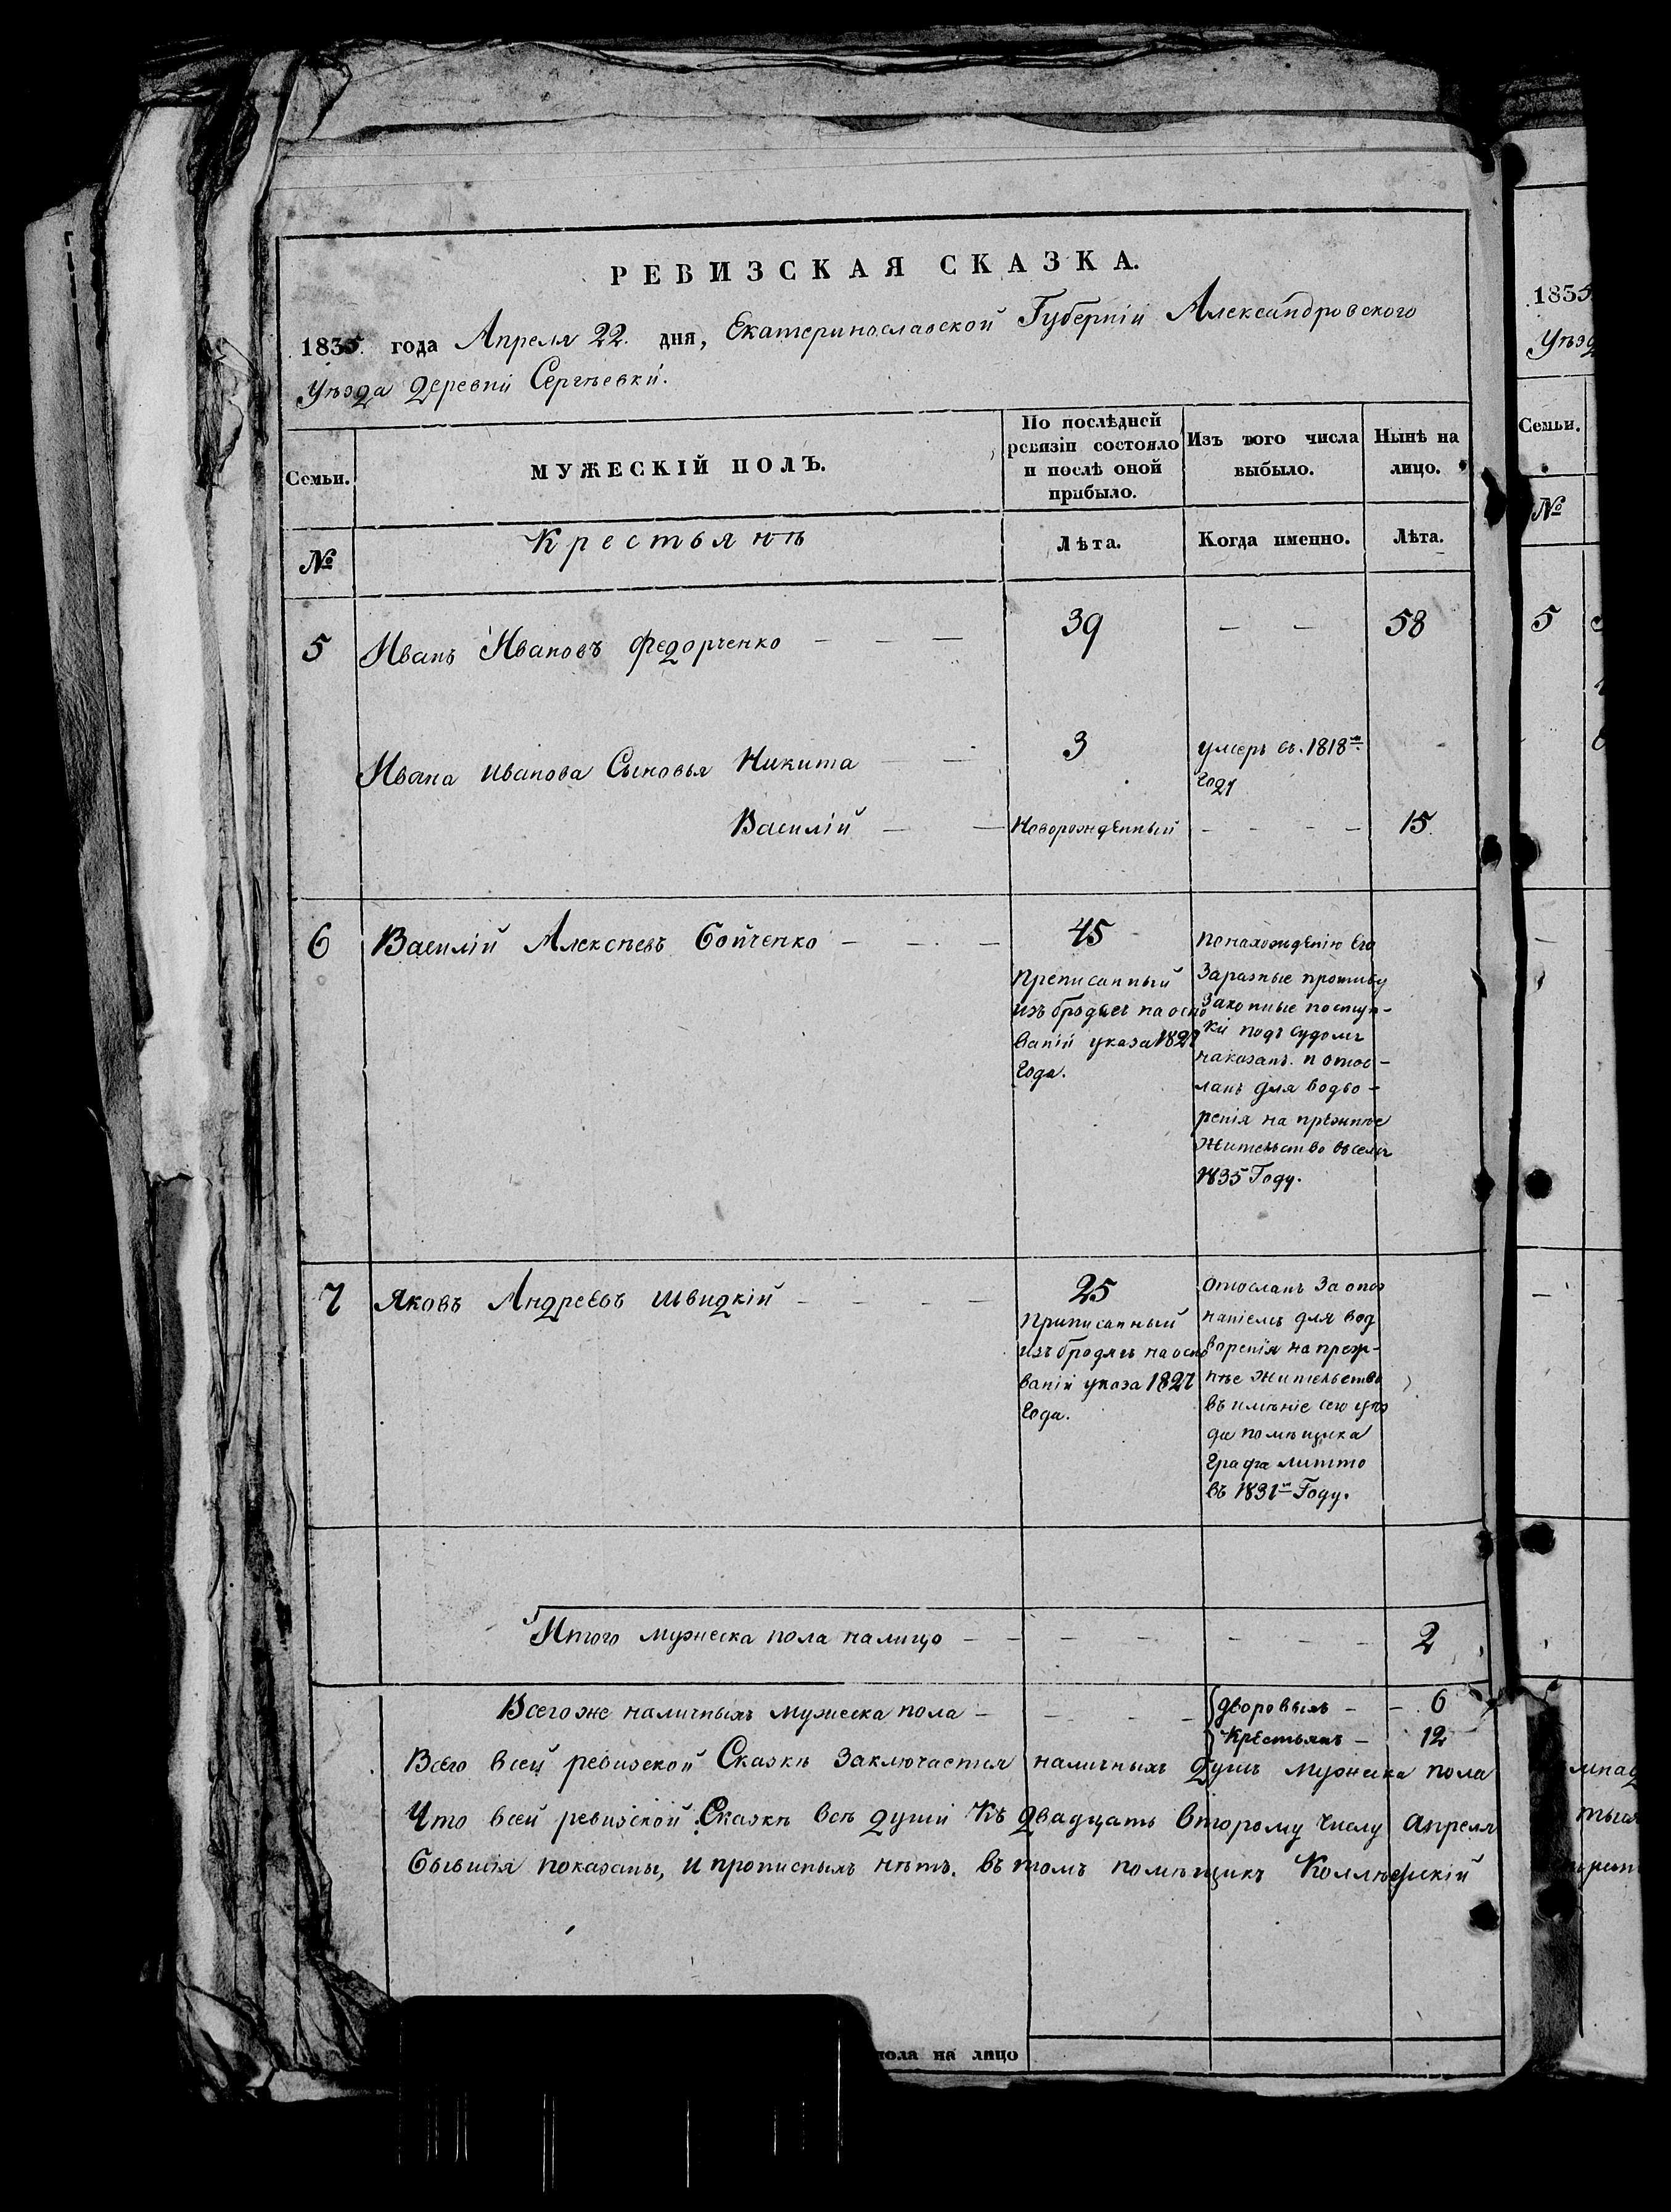 РЕВИЗСКАЯ СКАЗКА.
1835. года Апреля 22. дня, Екатеринославской Губерніи Александровского
Уѣзда деревни Сергѣевки.
Семьи.
МУЖЕСКІЙ ПОЛЪ.
По послѣдней ревизіи состояло и послѣ оной прибыло.
Изъ того числа выбыло.
Нынѣ на лицо.
№
Крестьянѣ
Лѣта.
Когда именно.
Лѣта.
5 Иванъ Ивановъ Федорченко — — — 39 — — 58
Ивана иванова Сыновья Никита — — 3 умеръ въ 1818м
году
Василій — — Новорожденный — — — — 15
6 Василій Алексѣевъ Бойченко — — — 45
Преписанный
изъ бродягъ на осно
ваніи указа 1827
года.
Понахожденію Его
Заразные противу
Законные поступ-
ки подъ судомъ
наказанъ и отос-
ланъ для водво-
ренія на прежнѣе
жительство всемъ
1835 Году.
7 Яковъ Андреевъ Швидкій — — — — 25
Приписанный
изъ бродягъ на осно
ваніи указа 1827
года.
Отосланъ За опоз
наніемъ для вод
воренія на преж-
нѣе жительство
въ имѣніе сего уѣз
да помѣщика
Графа литто
въ 1831м Году.
Итого мужеска пола налицо — — — — — — — 2
Всего же наличныхъ мужеска пола — — — — дворовыхъ — — 6
Крестьянъ — 12
Всего всей ревизской Сказкѣ Заключается наличныхъ душъ мужеска пола
Что всей ревизской Сказкѣ всѣ души къ двадцать второму числу апреля
бывшія показаны, и прописныхъ нѣтъ. въ томъ помѣщикъ
пола на лицо
1835
Уѣзд
Семьи.
№
5